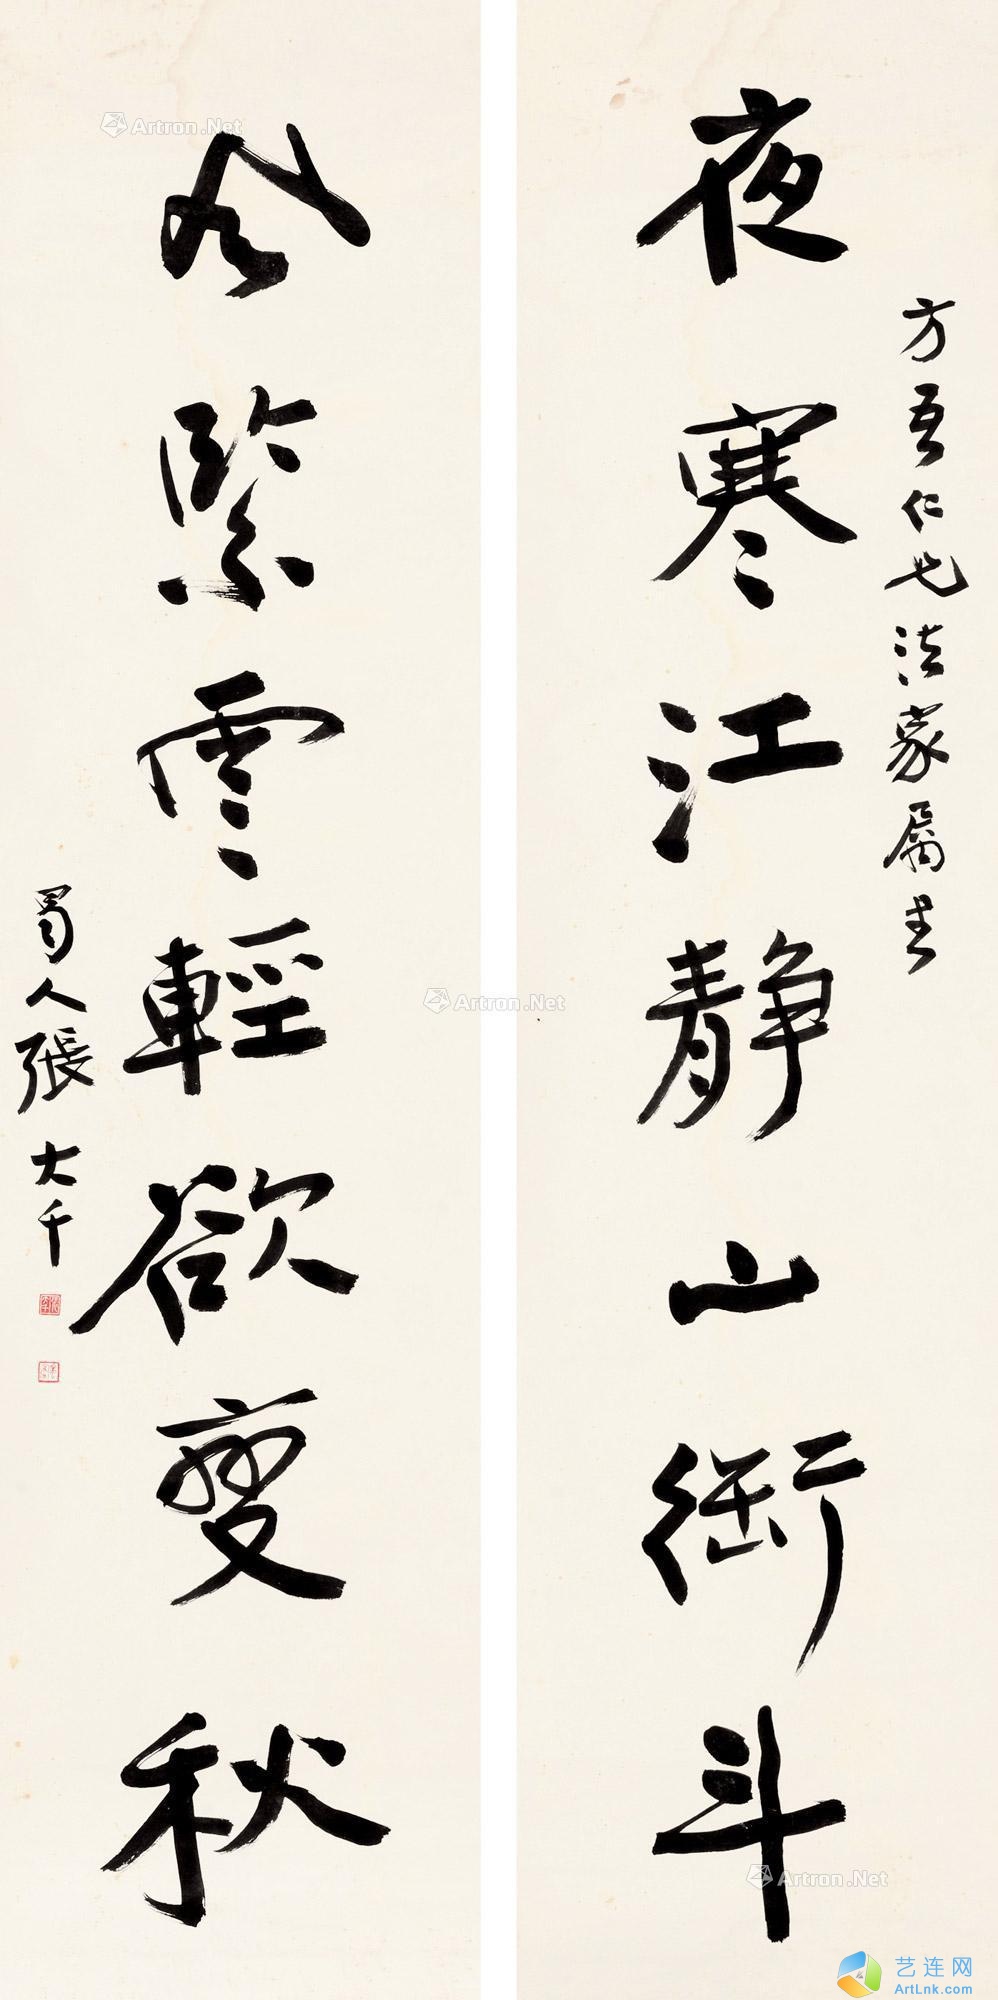 夜寒江静山衔斗
方吾仁兄法家属书
风紧云轻欲变秋
蜀人張大千
Artron.Net
Artron.Net
Artron.Net
艺连网
ArtLnk.com